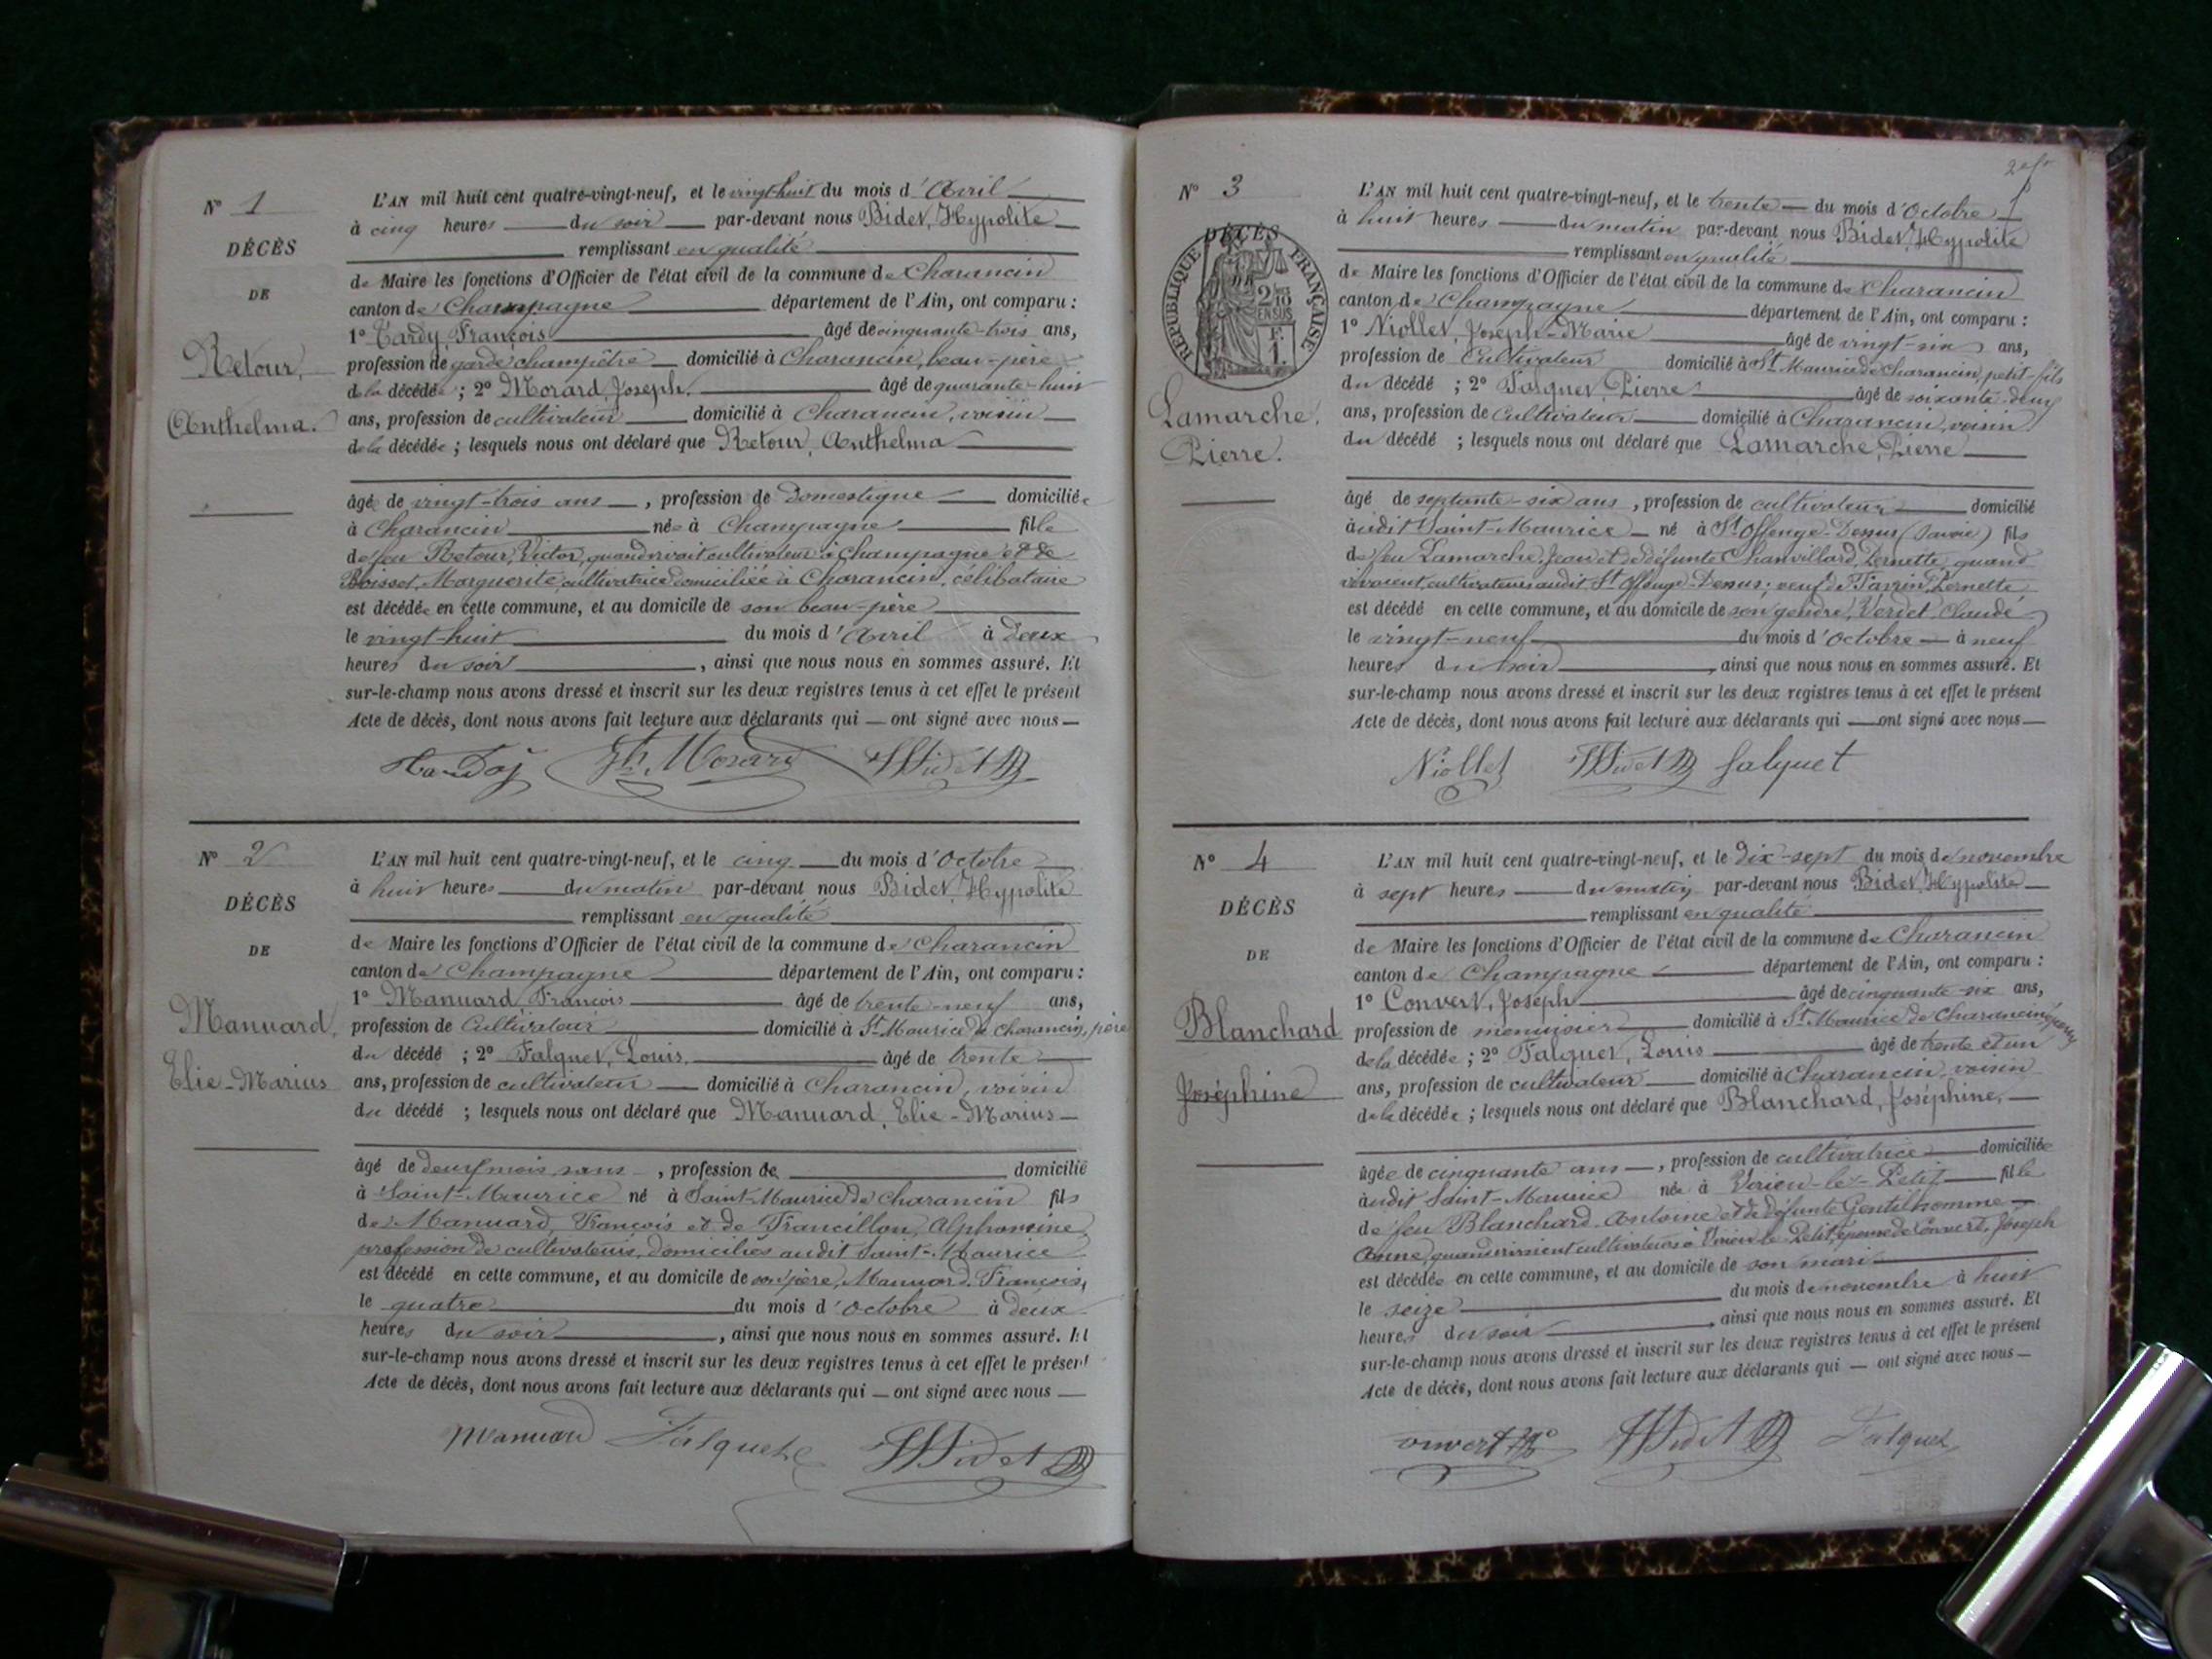 N° 1
DÉCÈS
DE
Retour,
Anthelma.
L'AN mil huit cent quatre-vingt-neuf, et le vingt-huit du mois d'Avril
à cinq heures du soir par-devant nous Bidet, Hypolite
remplissant en qualité
de Maire les fonctions d'Officier de l'état civil de la commune de Charancin
canton de Champagne département de l'Ain, ont comparu :
1° Tardy, François âgé de cinquante-trois ans,
profession de garde champêtre domicilié à Charancin, beau-père
de la décédée ; 2° Morard, Joseph. âgé de quarante-huit
ans, profession de cultivateur domicilié à Charancin, voisin
de la décédée ; lesquels nous ont déclaré que Retour, Anthelma
âgée de vingt-trois ans , profession de Domestique domiciliée
à Charancin née à Champagne fille
de feu Retour, Victor, quand vivait cultivateur à Champagne et de
Boisset, Marguerite, cultivatrice domiciliée à Charancin, célibataire
est décédée en cette commune, et au domicile de son beau-père
le vingt-huit du mois d'Avril à deux
heures du soir , ainsi que nous nous en sommes assuré. Et
sur-le-champ nous avons dressé et inscrit sur les deux registres tenus à cet effet le présent
Acte de décès, dont nous avons fait lecture aux déclarants qui — ont signé avec nous —
Tardy Jh. Morard HBidet
N° 2
DÉCÈS
DE
Manuard,
Elie-Marius
L'AN mil huit cent quatre-vingt-neuf, et le cinq du mois d'Octobre
à huit heures du matin par-devant nous Bidet, Hypolite
remplissant en qualité
de Maire les fonctions d'Officier de l'état civil de la commune de Charancin
canton de Champagne département de l'Ain, ont comparu :
1° Manuard, François âgé de trente-neuf ans,
profession de Cultivateur domicilié à St Maurice de Charancin, père
du décédé ; 2° Falquet, Louis. âgé de trente
ans, profession de cultivateur domicilié à Charancin, voisin
du décédé ; lesquels nous ont déclaré que Manuard, Elie-Marius
âgé de deux mois sans , profession de domicilié
à Saint-Maurice né à Saint-Maurice de Charancin fils
de Manuard, François et de Francillon, Alphonsine,
profession de cultivateurs, domiciliés audit Saint-Maurice
est décédé en cette commune, et au domicile de son père, Manuard, François,
le quatre du mois d'Octobre à deux
heures du soir , ainsi que nous nous en sommes assuré. Et
sur-le-champ nous avons dressé et inscrit sur les deux registres tenus à cet effet le présent
Acte de décès, dont nous avons fait lecture aux déclarants qui — ont signé avec nous —
Manuard Falquet HBidet
N° 3
DÉCÈS
DE
RÉPUBLIQUE FRANÇAISE
2/10 EN SUS
F. 1.
Lamarche,
Pierre.
L'AN mil huit cent quatre-vingt-neuf, et le trente du mois d'Octobre
à huit heures du matin par-devant nous Bidet, Hypolite
remplissant en qualité
de Maire les fonctions d'Officier de l'état civil de la commune de Charancin
canton de Champagne département de l'Ain, ont comparu :
1° Niollet, Joseph-Marie âgé de vingt-six ans,
profession de Cultivateur domicilié à St Maurice de Charancin, petit-fils
du décédé ; 2° Falquet, Pierre âgé de soixante-deux
ans, profession de Cultivateur domicilié à Charancin, voisin
du décédé ; lesquels nous ont déclaré que Lamarche, Pierre
âgé de septante-six ans , profession de cultivateur domicilié
audit Saint-Maurice né à St Offenge-Dessus (Savoie) fils
de feu Lamarche, Jean et de défunte Chanvillard, Pernette, quand
vivaient, cultivateurs audit St Offenge-Dessus; veuf de Pernette
est décédé en cette commune, et au domicile de son gendre, Verdet Claude
le vingt-neuf du mois d'Octobre à neuf
heures du soir , ainsi que nous nous en sommes assuré. Et
sur-le-champ nous avons dressé et inscrit sur les deux registres tenus à cet effet le présent
Acte de décès, dont nous avons fait lecture aux déclarants qui — ont signé avec nous —
Niollet HBidet falquet
N° 4
DÉCÈS
DE
Blanchard
Joséphine
L'AN mil huit cent quatre-vingt-neuf, et le Dix-sept du mois de novembre
à sept heures du matin par-devant nous Bidet, Hypolite
remplissant en qualité
de Maire les fonctions d'Officier de l'état civil de la commune de Charancin
canton de Champagne département de l'Ain, ont comparu :
1° Convert, Joseph âgé de cinquante-six ans,
profession de menuisier domicilié à St Maurice de Charancin, époux
de la décédée ; 2° Falquet, Louis âgé de trente et un
ans, profession de cultivateur domicilié à Charancin, voisin
de la décédée ; lesquels nous ont déclaré que Blanchard, Joséphine,
âgée de cinquante ans , profession de cultivatrice domiciliée
audit Saint-Maurice née à Virieu-le-Petit fille
de feu Blanchard, Antoine et de défunte Gentilhomme
Anne, quand vivaient cultivateurs à Virieu-le-Petit, épouse de Convert, Joseph
est décédée en cette commune, et au domicile de son mari
le seize du mois de novembre à huit
heures du soir , ainsi que nous nous en sommes assuré. Et
sur-le-champ nous avons dressé et inscrit sur les deux registres tenus à cet effet le présent
Acte de décès, dont nous avons fait lecture aux déclarants qui — ont signé avec nous —
onvert HBidet Falquet